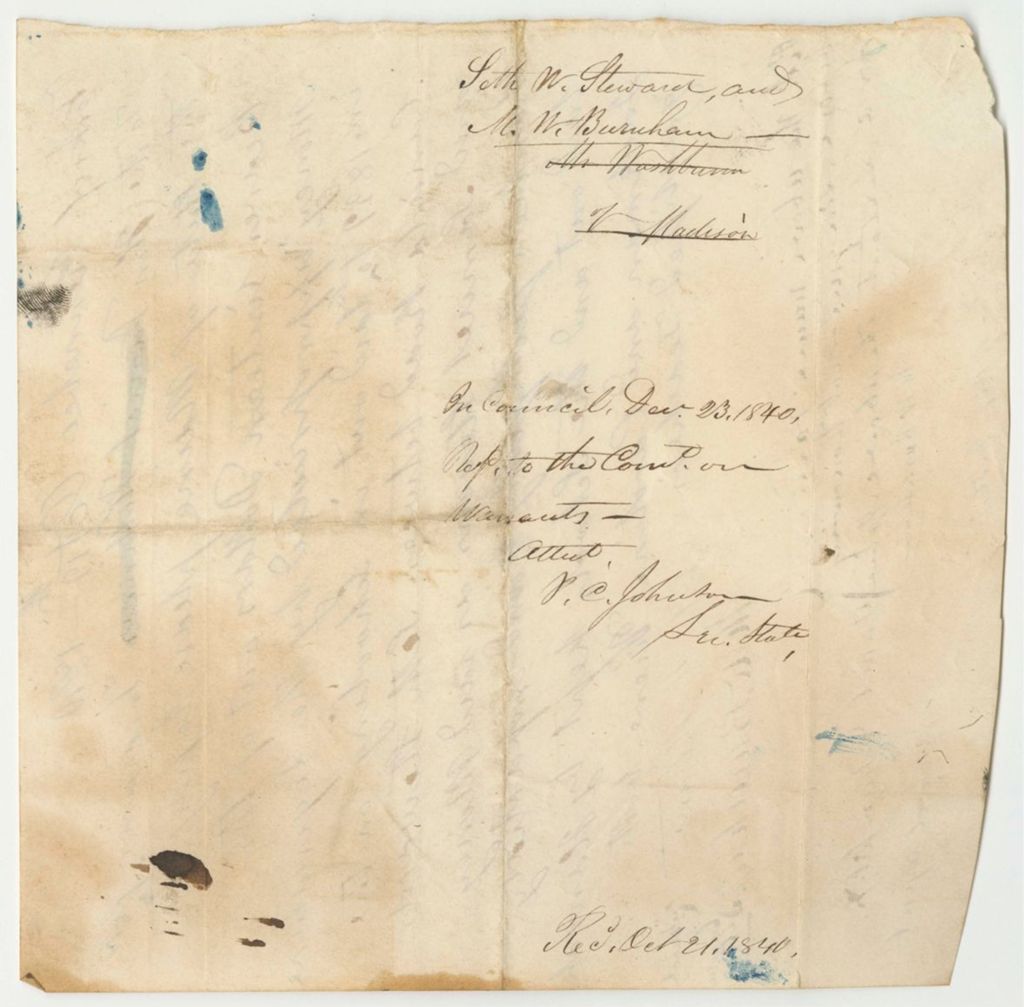 Seth W. Steward, and
M. W. Burnham —
Mr Washburn
of Madison
In Council, Dec. 23. 1840,
Ref. to the Comee. on
Warrants —
Attest,
P. C. Johnson
Sec. State,
Rec'd. Oct 21, 1840.